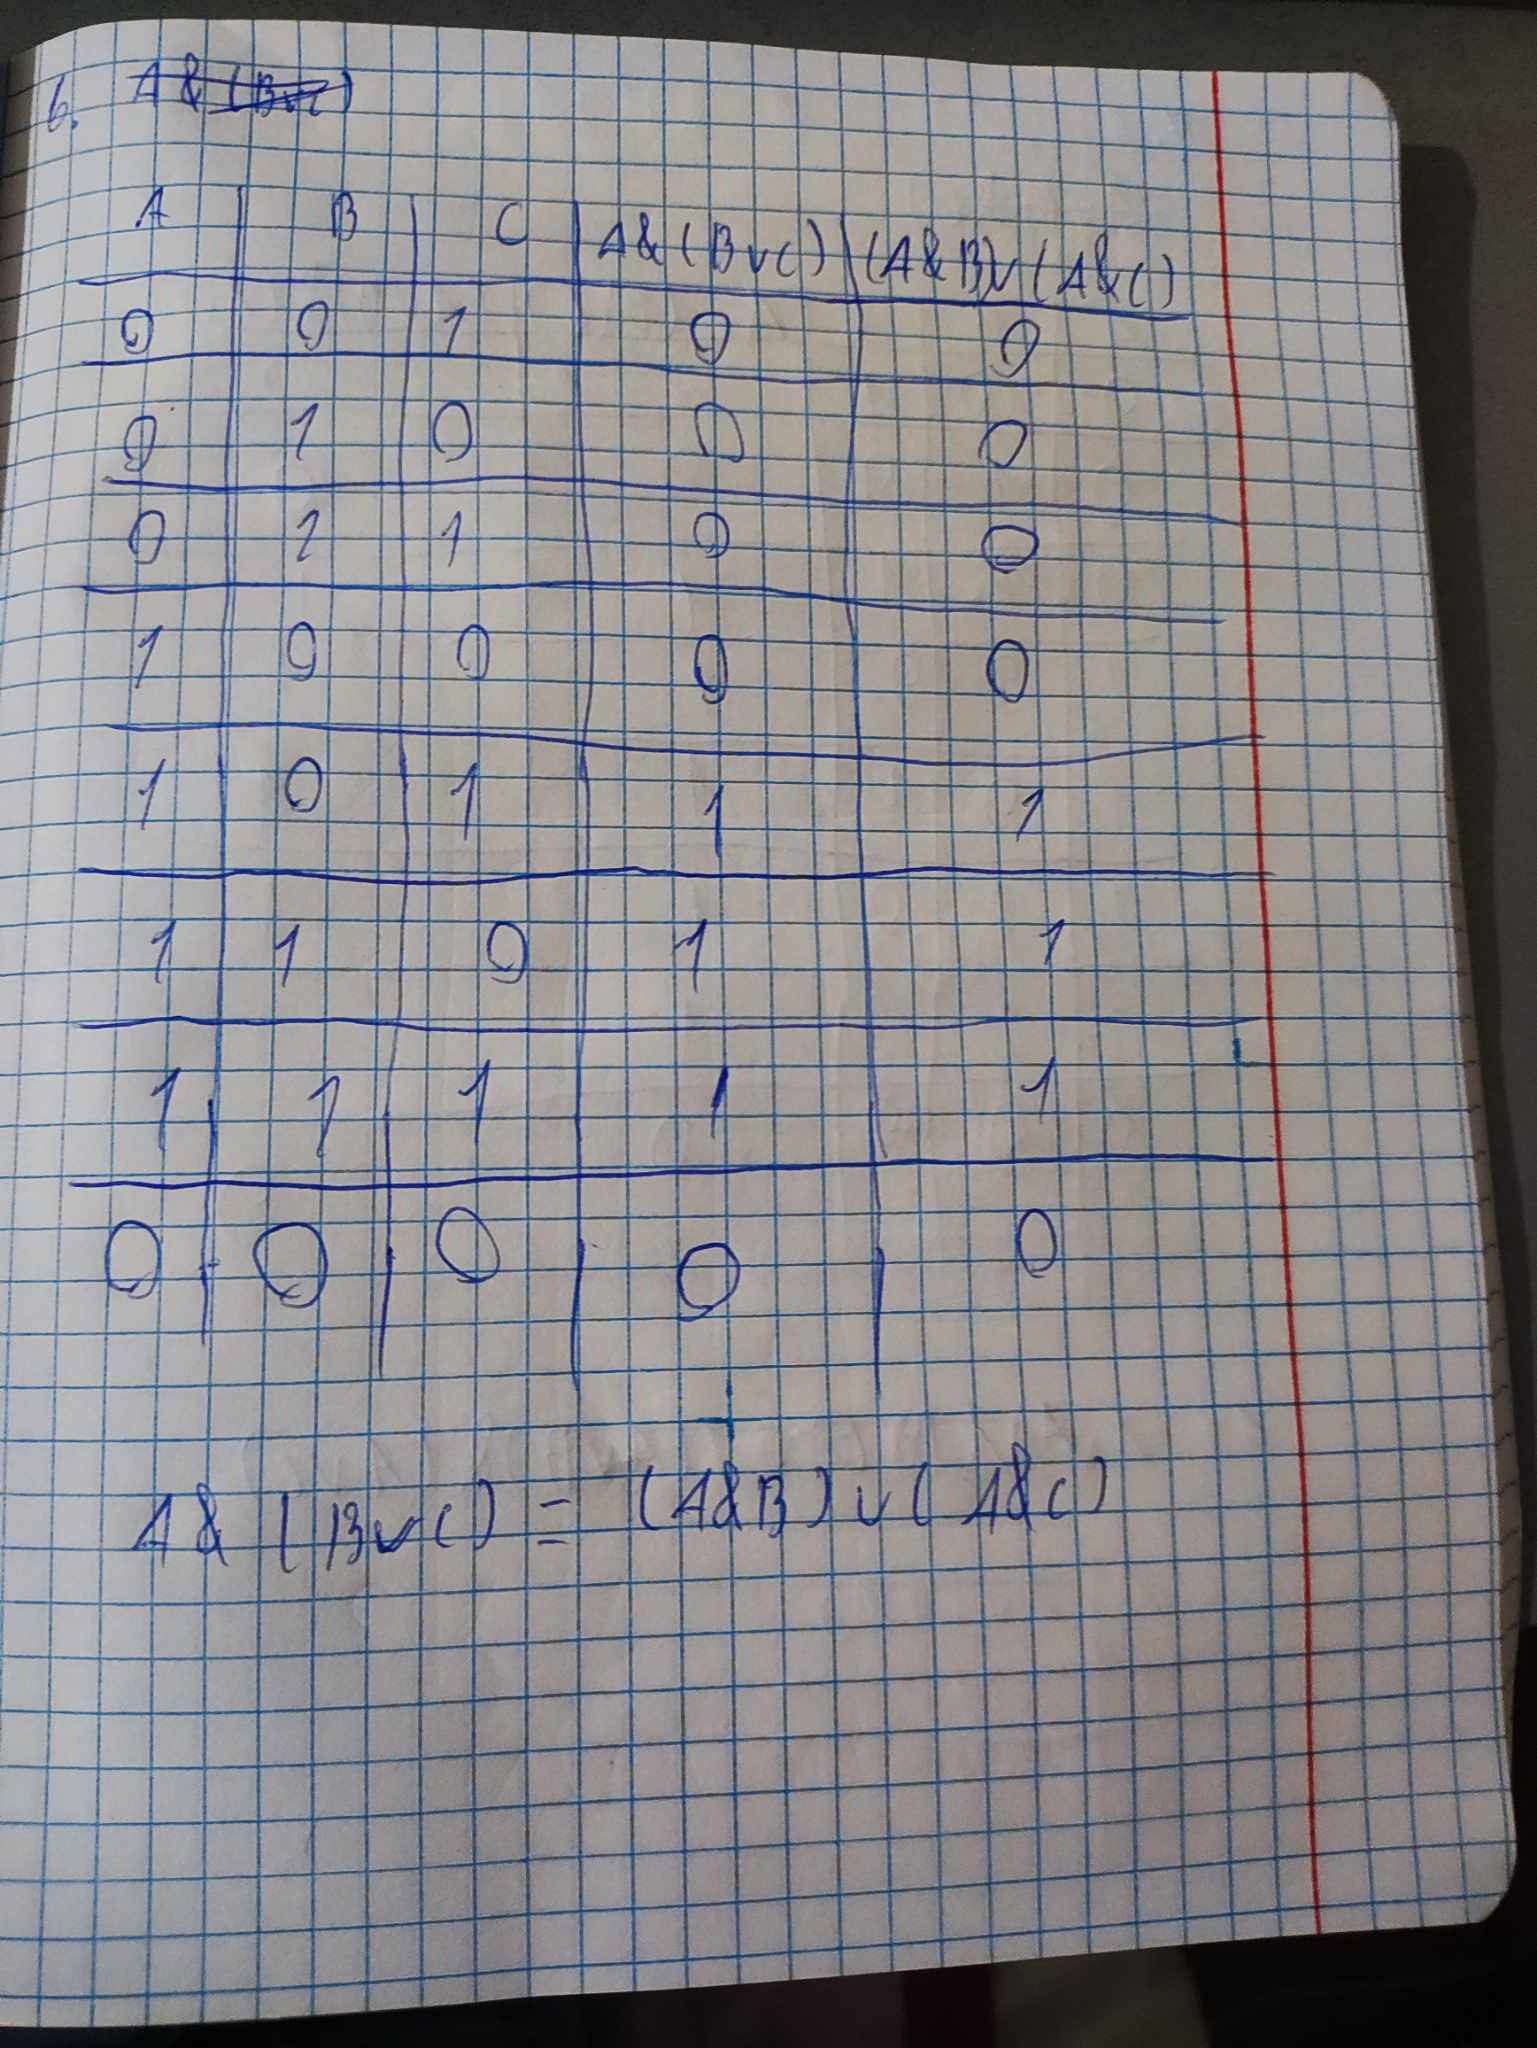 6. A&(BvC)
A B C A&(BvC) (A&B)v(A&C)
0 0 1 0 0
0 1 0 0 0
0 1 1 0 0
1 0 0 0 0
1 0 1 1 1
1 1 0 1 1
1 1 1 1 1
0 0 0 0 0
A&(BvC) = (A&B)v(A&C)